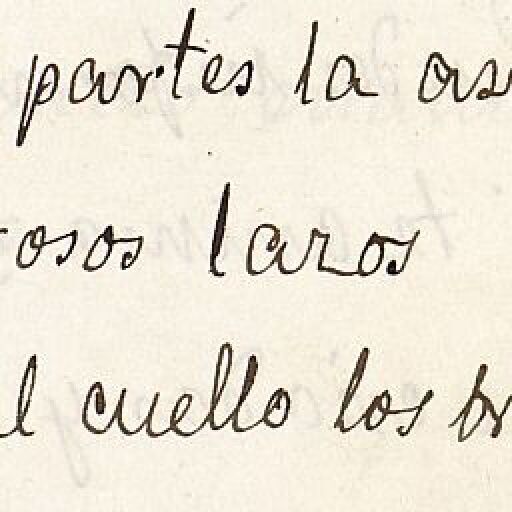 partes la as
osos lazos
l cuello los br